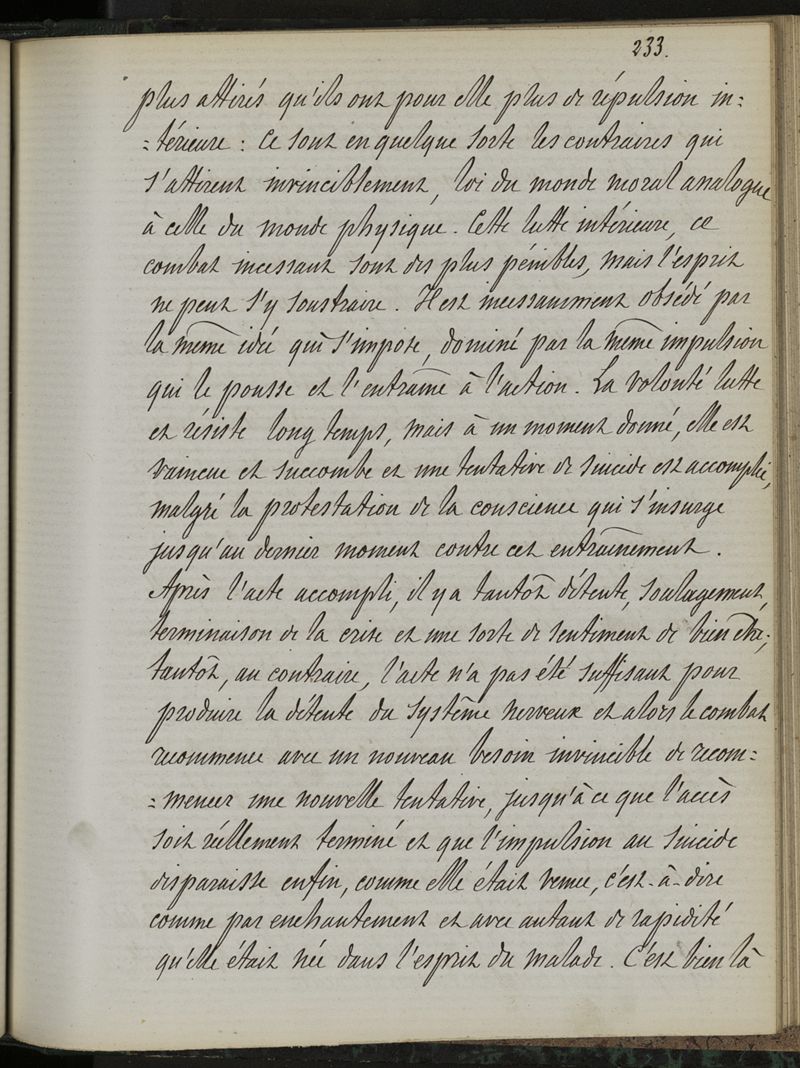 233.
plus attirés qu'ils ont pour elle plus de répulsion in=
=térieure : Ce sont en quelque sorte les contraires qui
s'attirent invinciblement, loi du monde moral analogue
à celle du monde physique. Cette lutte intérieure, ce
combat incessant sont des plus pénibles, mais l'esprit
ne peut s'y soustraire. Il est incessamment obsédé par
la même idée qui s'impose, dominé par la même impulsion
qui le pousse et l'entraîne à l'action. La volonté lutte
et résiste long temps, mais à un moment donné, elle est
vaincue et succombe et une tentative de suicide est accomplie,
malgré la protestation de la conscience qui s'insurge
jusqu'au dernier moment contre cet entraînement.
Après l'acte accompli, il y a tantôt détente, soulagement,
terminaison de la crise et une sorte de sentiment de bien être;
tantôt, au contraire, l'acte n'a pas été suffisant pour
produire la détente du système nerveux et alors le combat
recommence avec un nouveau besoin invincible de recom=
=mencer une nouvelle tentative, jusqu'à ce que l'accès
soit réellement terminé et que l'impulsion au suicide
disparaisse enfin, comme elle était venue, c'est-à-dire
comme par enchantement et avec autant de rapidité
qu'elle était née dans l'esprit du malade. C'est bien là